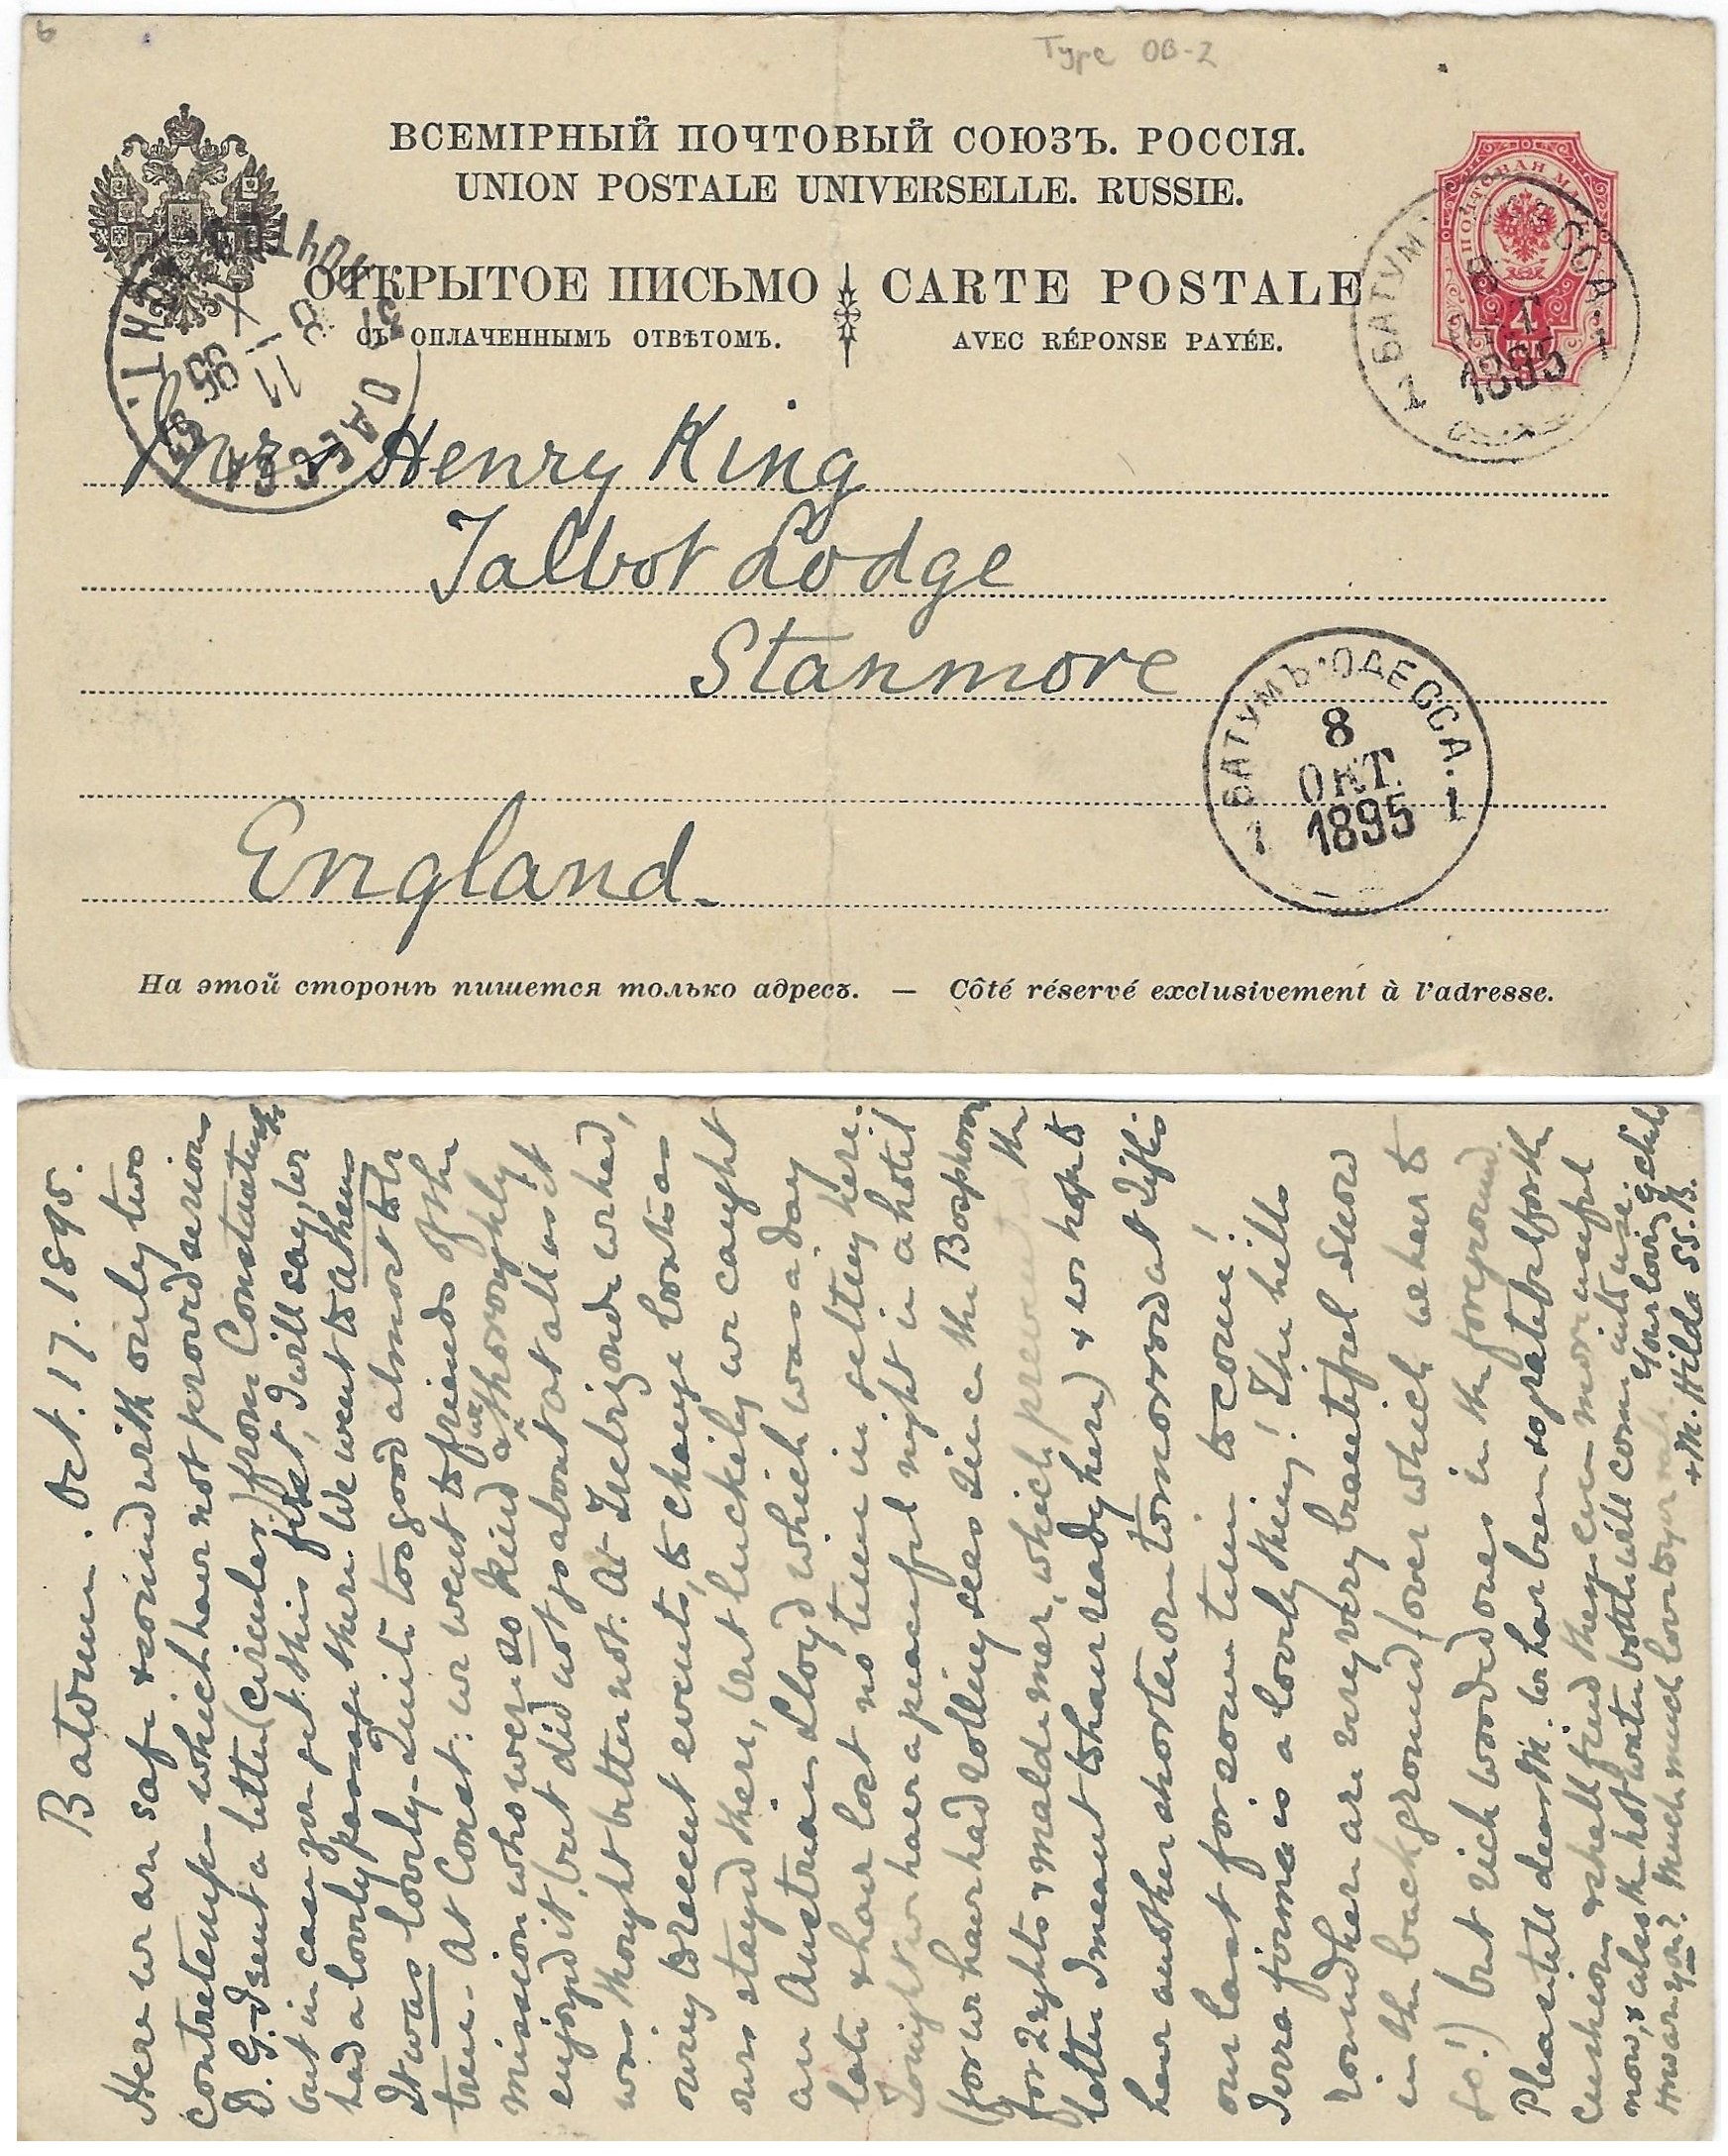 Type OB-2
ВСЕМІРНЫЙ ПОЧТОВЫЙ СОЮЗЪ. РОССІЯ.
UNION POSTALE UNIVERSELLE. RUSSIE.
ОТКРЫТОЕ ПИСЬМО CARTE POSTALE
СЪ ОПЛАЧЕННЫМЪ ОТВѢТОМЪ. AVEC RÉPONSE PAYÉE.
ПОЧТОВАЯ
4
БАТУМЪ ОДЕССА. 1
8
ОКТ.
1895
1
ОДЕССА
11
95
Mrs Henry King
Talbot Lodge
Stanmore
England.
БАТУМЪ·ОДЕССА. 1
8
ОКТ.
1895
1
На этой сторонѣ пишется только адресъ. — Côté réservé exclusivement à l'adresse.
Batoum. Oct. 17. 1895.
Here we are safe & sound with only two
contretemps which have not proved serious
D. G. I sent a letter (circular) from Constant
but in case you get this first, I will say, we
had a lovely passage there. We went to Athens
It was lovely. Quite too good almost to be
true. At Const: we went to friends of the
mission who were so kind & we thoroughly
enjoyed it, but did not go about at all as it
was thought better not. At Trebizonde we had,
owing to recent events, to change boats as
ours stayed there, but luckily we caught
an Austrian Lloyd which was a day
late & have lost no time in getting here.
Tonight we have a peaceful night in a hotel
(for we have had rolling seas since the Bosphorus
for 2 nights & mal de mer, which prevented the
letter I meant to have ready here) & we hope to
have another shorter one tomorrow at Tiflis
our last for some time to come!
Terra firma is a lovely thing! The hills
round here are very very beautiful snow
in the background (over which we have to
go!) but rich wooded ones in the foreground.
Please tell dear M. we have been so grateful for the
cushions & shall find them even more useful
now, & also the hot water bottle will come into use.
How are you? Much much love to you all. Your loving child
& M. Hilda